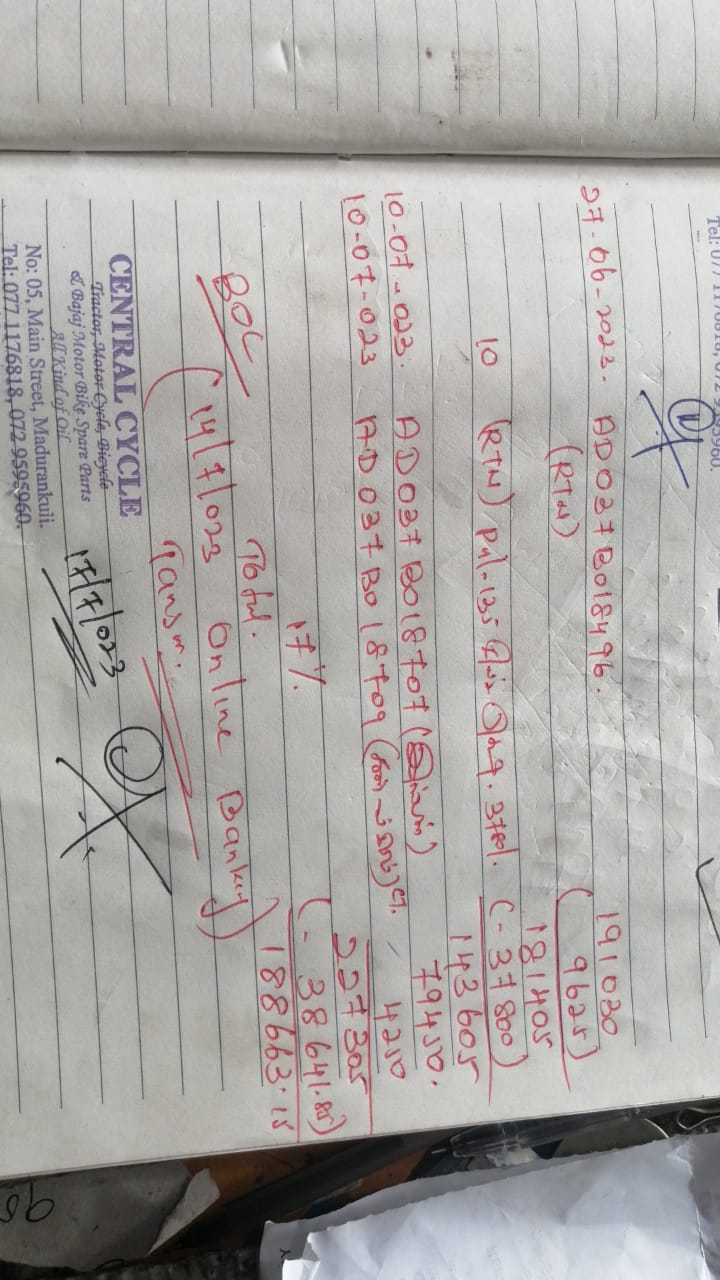 27-06-2023. AD037B018496. 191030
(RTN) (9625)
181405
10 (RTN) Pul-135 3780/. (-37800)
143605
10-07-023. AD037B018707 79450.
10-07-023 AD037B018709 4250
227305
17%. (-38641.85)
Total. 188663.15
BOC (14/7/023 Online Banking)
Transn.
CENTRAL CYCLE
Tractor, Motor Cycle, Bicycle
& Bajaj Motor Bike Spare Parts
All Kind of Oil
No: 05, Main Street, Madurankuli.
Tel: 077 1176818, 072 9595960.
17/7/023